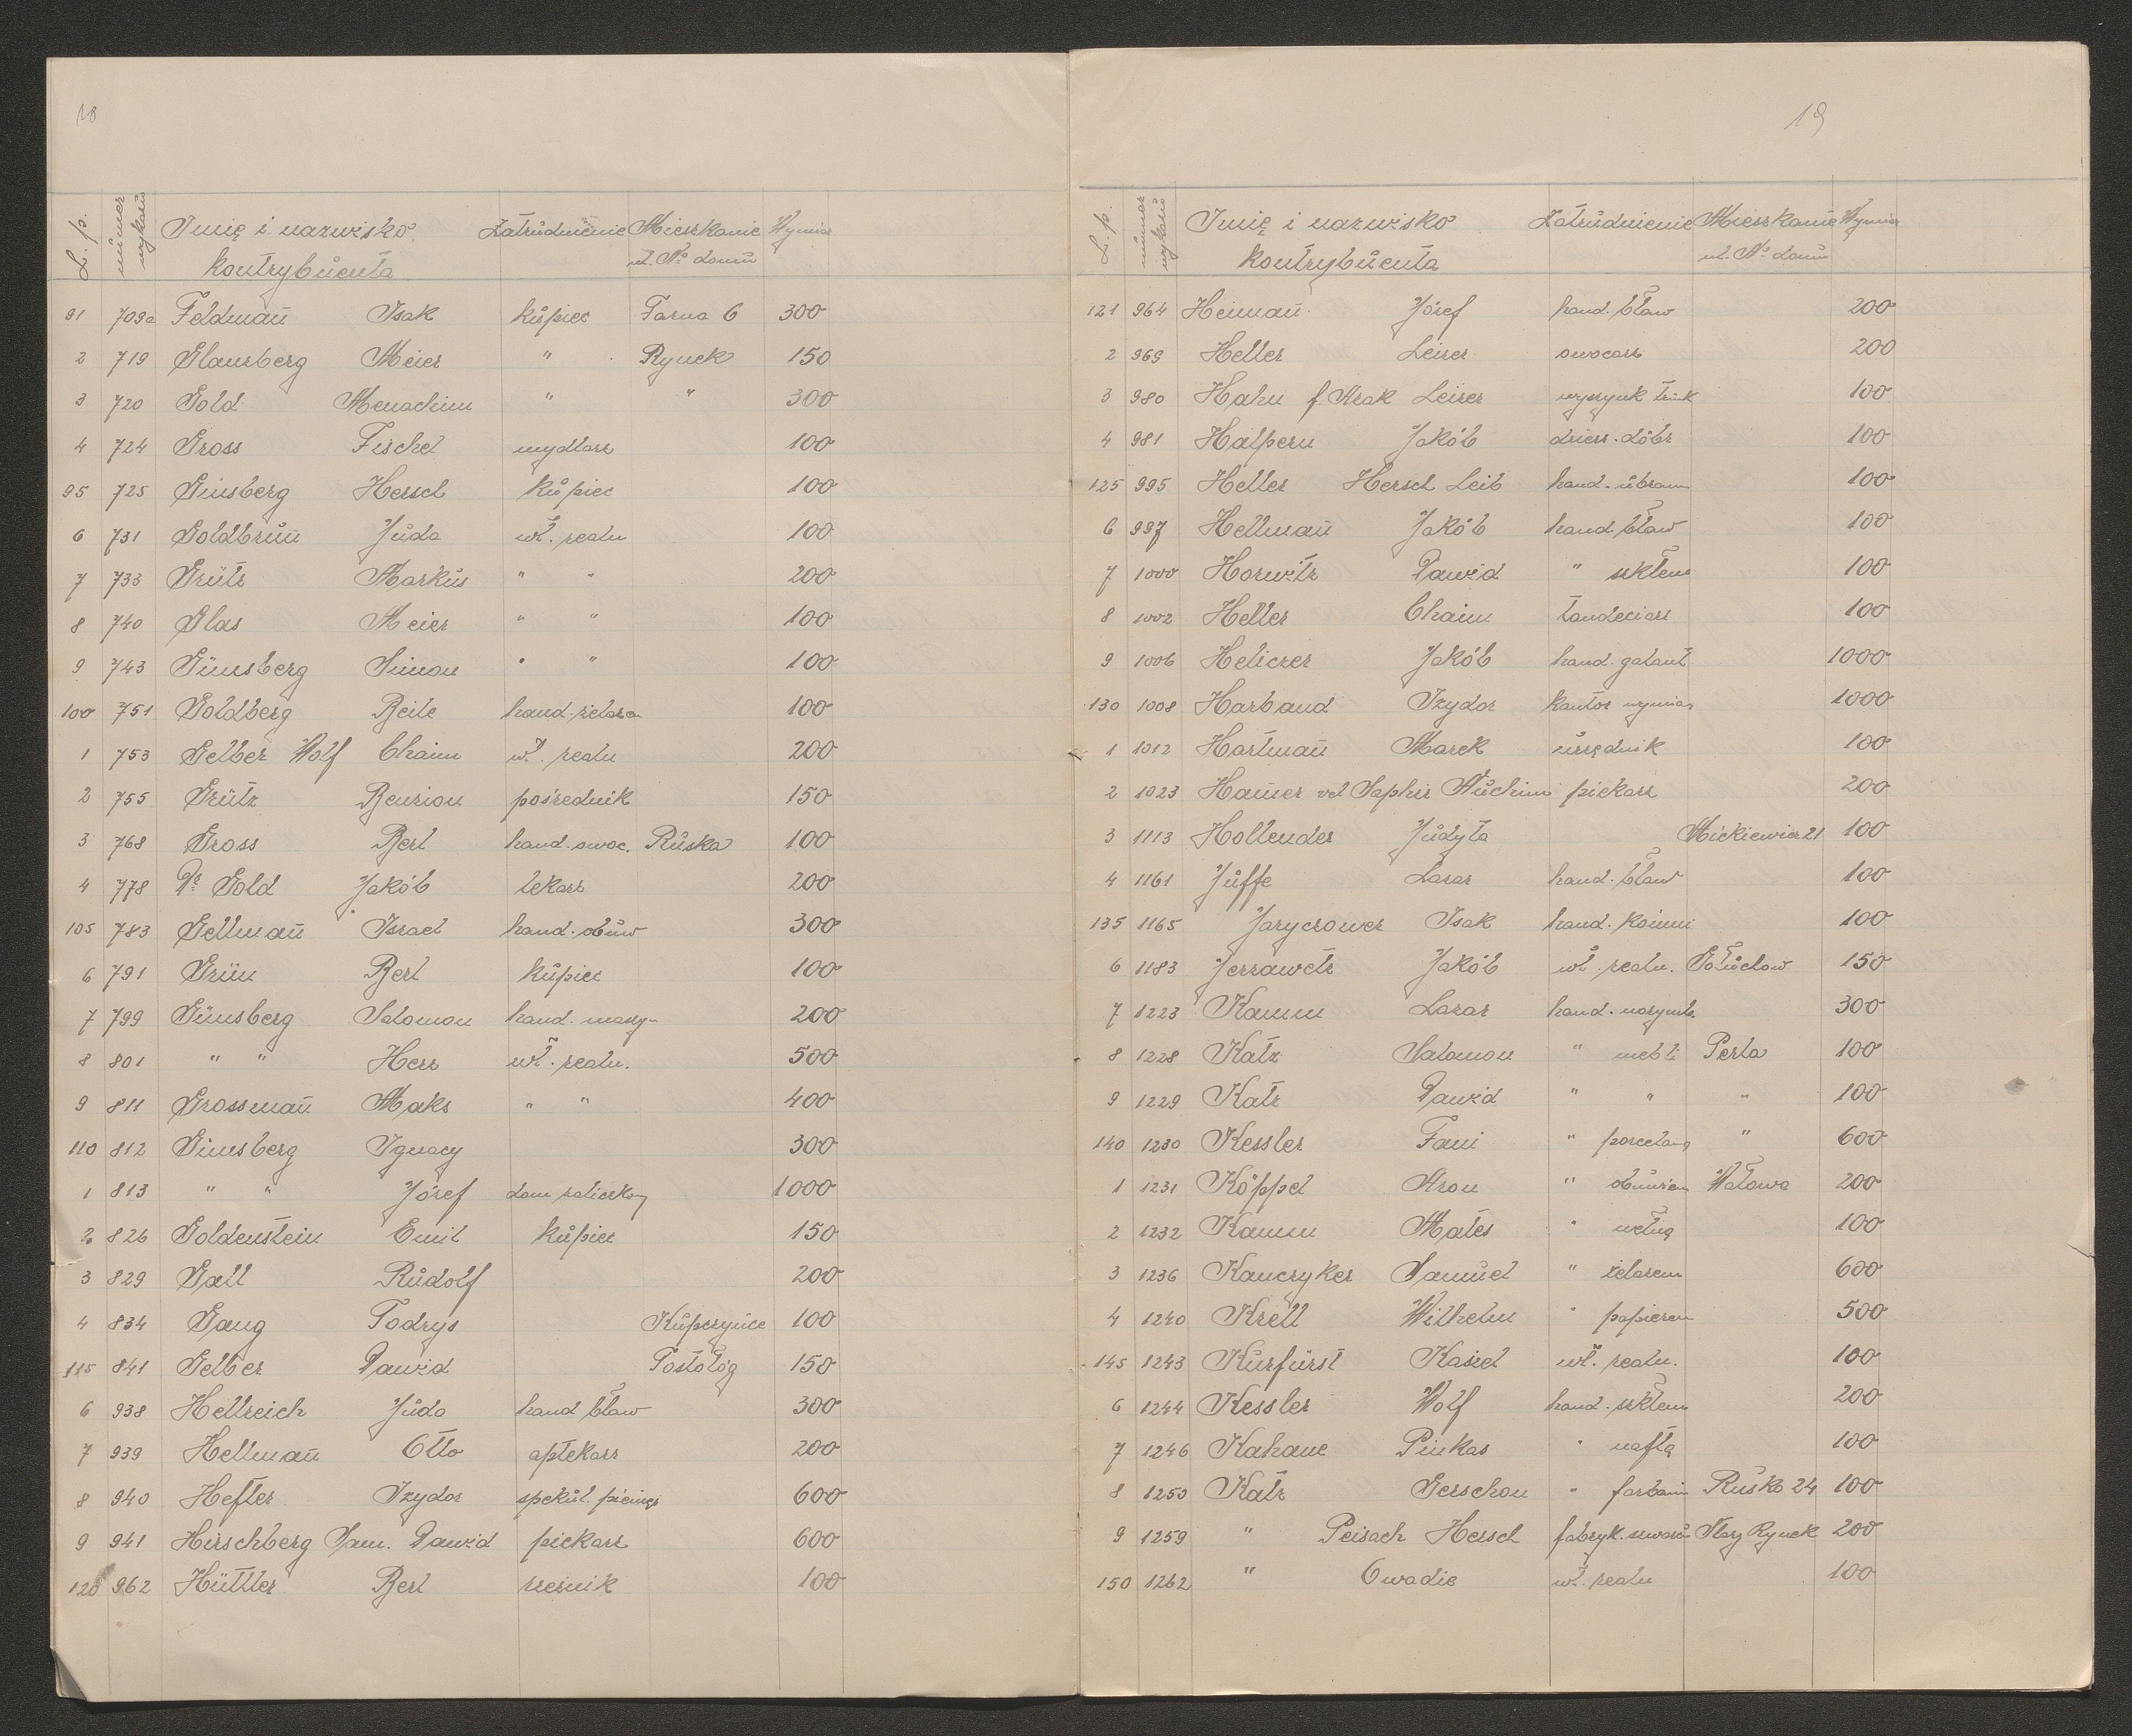 18
L. p. numer wykazu Imię i nazwisko Zatrudnienie Mieszkanie Wymiar
kontrybuenta ul. No domu
91 709a Feldman̄ Isak kupiec Farna 6 300
2 719 Glansberg Meier " Rynek 150
3 720 Gold Menachim " " 300
4 724 Gross Fischel mydlarz 100
95 725 Ginsberg Hersch kupiec 100
6 731 Goldbrun̄ Juda wł. realn 100
7 733 Grütz Markus " " 200
8 740 Glas Meier " " 100
9 743 Günsberg Simon " " 100
100 751 Goldberg Beile hand. żelaza 100
1 753 Gelber Wolf Chaim wł. realn 200
2 755 Grütz Benzion pośrednik 150
3 768 Gross Berl hand. owoc. Ruska 100
4 778 Dr Gold Jakób lekarz 200
105 783 Gellman̄ Israel hand. obuw 300
6 791 Grün Berl kupiec 100
7 799 Günsberg Salomon hand. maszyn 200
8 801 " " Herz wł. realn. 500
9 811 Grossman̄ Maks " " 400
110 812 Günsberg Ignacy 300
1 813 " " Józef dom zaliczkowy 1000
2 826 Goldenstein Emil kupiec 150
3 829 Gall Rudolf 200
4 834 Gang Todrys Kupczyńce 100
115 841 Gelber Dawid Postołóg 150
6 938 Hellreich Juda hand bław 300
7 939 Hellman̄ Otto aptekarz 200
8 940 Hefter Izydor spekul. pienięż 600
9 941 Hirschberg Sam. Dawid piekarz 600
120 962 Hüttler Berl rzeźnik 100
19
L. p. numer wykazu Imię i nazwisko Zatrudnienie Mieszkanie Wymiar
kontrybuenta ul. No domu
121 964 Heiman̄ Józef hand. bław 200
2 969 Heller Leizer owocarz 200
3 980 Hahn f. Arak Leizer wyszynk trunk 100
4 981 Halpern Jakób dzierż. dóbr 100
125 995 Heller Hersch Leib hand. ubram 100
6 997 Hellman̄ Jakób hand. bław 100
7 1000 Horwitz Dawid " szkłem 100
8 1002 Heller Chaim tandeciarz 100
9 1006 Heliczer Jakób hand. galant 1000
130 1008 Harband Izydor kantor wymian 1000
1 1012 Hartman̄ Marek urzędnik 100
2 1023 Hamer vel Saphir Nuchim piekarz 200
3 1113 Hollender Judyta Mickiewicz 21 100
4 1161 Juffe Lazar hand. bław 100
135 1165 Jaryczower Isak hand. końmi 100
6 1183 Jerzawetz Jakób wł. realn. Gołuchow 150
7 1223 Kamm Lazar hand. naczynia 300
8 1228 Katz Salomon " mebli Perla 100
9 1229 Katz Dawid " " " 100
140 1230 Kessler Fani " porcelaną " 600
1 1231 Köppel Aron " obuwiem Wałowa 200
2 1232 Kamm Mates " wełną 100
3 1236 Kanczyker Samuel " żelazem 600
4 1240 Krell Wilhelm " papierem 500
145 1243 Kurfürst Kasiel wł. realn. 100
6 1244 Kessler Wolf hand. szkłem 200
7 1246 Kahane Pinkas " naftą 100
8 1250 Katz Gerschon " farbami Ruska 24 100
9 1259 " Peisach Hersch fabryk. suwaru Stary Rynek 200
150 1262 " Owadie wł. realn 100